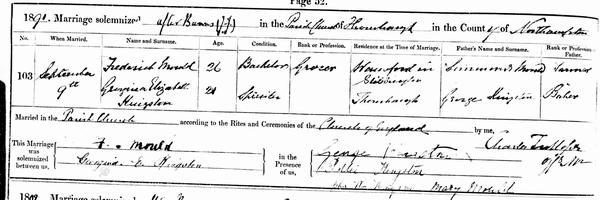 Page 52.
1890. Marriage solemnized after Banns (J.J.) in the Parish Church of Thornhaugh in the County of Northampton
No. When Married. Name and Surname. Age. Condition. Rank or Profession. Residence at the Time of Marriage. Father's Name and Surname. Rank or Profession of Father.
103 September 9th Frederick Mould 26 Bachelor Grocer Wansford in Stibbington Simmonds Mould Farmer
Georgina Elizabeth Kingston 21 Spinster Thornhaugh George Kingston Baker
Married in the Parish Church according to the Rites and Ceremonies of the Church of England by me, Charles
This Marriage was solemnized between us, F. Mould
Georgina E. Kingston
in the Presence of us, George Kingston
Kingston
Mary Mould
Marriage solemnized in the in the County of